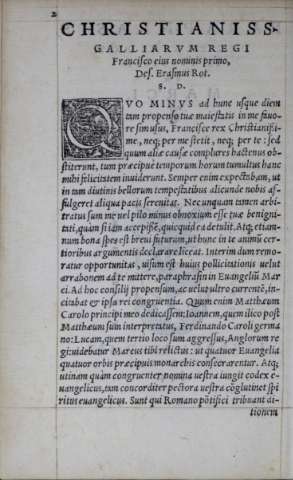 2
CHRISTIANISS-
GALLIARVM REGI
Francisco eius nominis primo,
Des. Erasmus Rot.
S. D.
QVO MINVS ad hunc usque diem
tam propenso tuæ maiestatis in me fauo-
re sim usus, Francisce rex Christianissi-
me, neq; per me stetit, neq; per te: sed
quum aliæ causæ complures hactenus ob-
stiterunt, tum præcipue temporum horum tumultus hanc
mihi felicitatem inuiderunt. Semper enim expectabam, ut
in tam diutinis bellorum tempestatibus alicunde nobis af-
fulgeret aliqua pacis serenitas. Nec unquam tamen arbi-
tratus sum me uel pilo minus obnoxium esse tuæ benigni-
tati, quàm si iam accepissē, quicquid ea detulit. Atq; etiam-
num bona spes est breui futurum, ut hunc in te animū cer-
tioribus argumentis declarare liceat. Interim dum remo-
ratur opportunitas, uisum est huius pollicitationis uelut
arrabonem ad te mittere, paraphrasin in Euangeliū Mar
ci. Ad hoc consilij propensum, ac uelut ultro currentē, in-
citabat & ipsa rei congruentia. Quum enim Matthæum
Carolo principi meo dedicassem: Ioannem, quem ilico post
Matthæum sum interpretatus, Ferdinando Caroli germa
no: Lucam, quem tertio loco sum aggressus, Anglorum re
gi: uidebatur Marcus tibi relictus: ut quatuor Euangelia
quatuor orbis præcipuis monarchis consecrarentur. Atq;
utinam quàm congruenter nomina uestra iungit codex e-
uangelicus, tam concorditer pectora uestra cōglutinet spi
ritus euangelicus. Sunt qui Romano pōtifici tribuant di-
tionem